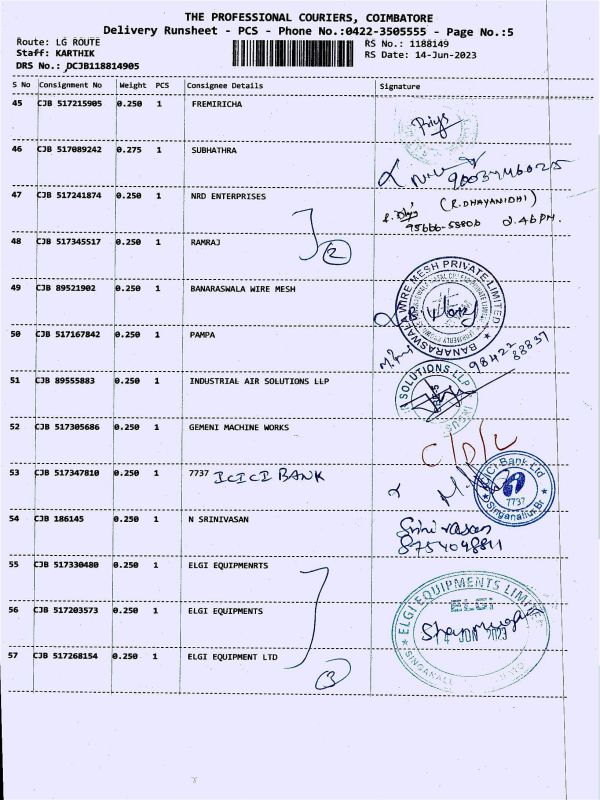 THE PROFESSIONAL COURIERS, COIMBATORE
Delivery Runsheet - PCS - Phone No.:0422-3505555 - Page No.:5
Route: LG ROUTE
Staff: KARTHIK
DRS No.: DCJB118814905
RS No.: 1188149
RS Date: 14-Jun-2023
S No Consignment No Weight PCS Consignee Details Signature
45 CJB 517215905 0.250 1 FREMIRICHA
Priya
46 CJB 517089242 0.275 1 SUBHATHRA
47 CJB 517241874 0.250 1 NRD ENTERPRISES
(R.DHAYANIDHI)
95666-53806 2.46PM.
48 CJB 517345517 0.250 1 RAMRAJ
2
49 CJB 89521902 0.250 1 BANARASWALA WIRE MESH
BANARASWALA WIRE MESH PRIVATE LIMITED
50 CJB 517167842 0.250 1 PAMPA
98422 88837
51 CJB 89555883 0.250 1 INDUSTRIAL AIR SOLUTIONS LLP
SOLUTIONS LLP
52 CJB 517305686 0.250 1 GEMENI MACHINE WORKS
C/D/L
53 CJB 517347810 0.250 1 7737 ICICI BANK
ICICI Bank Ltd
7737
Singanallur Br
54 CJB 186145 0.250 1 N SRINIVASAN
Srinivasan
8754048811
55 CJB 517330480 0.250 1 ELGI EQUIPMENRTS
56 CJB 517203573 0.250 1 ELGI EQUIPMENTS
ELGI EQUIPMENTS LIMITED
ELGi
57 CJB 517268154 0.250 1 ELGI EQUIPMENT LTD
3